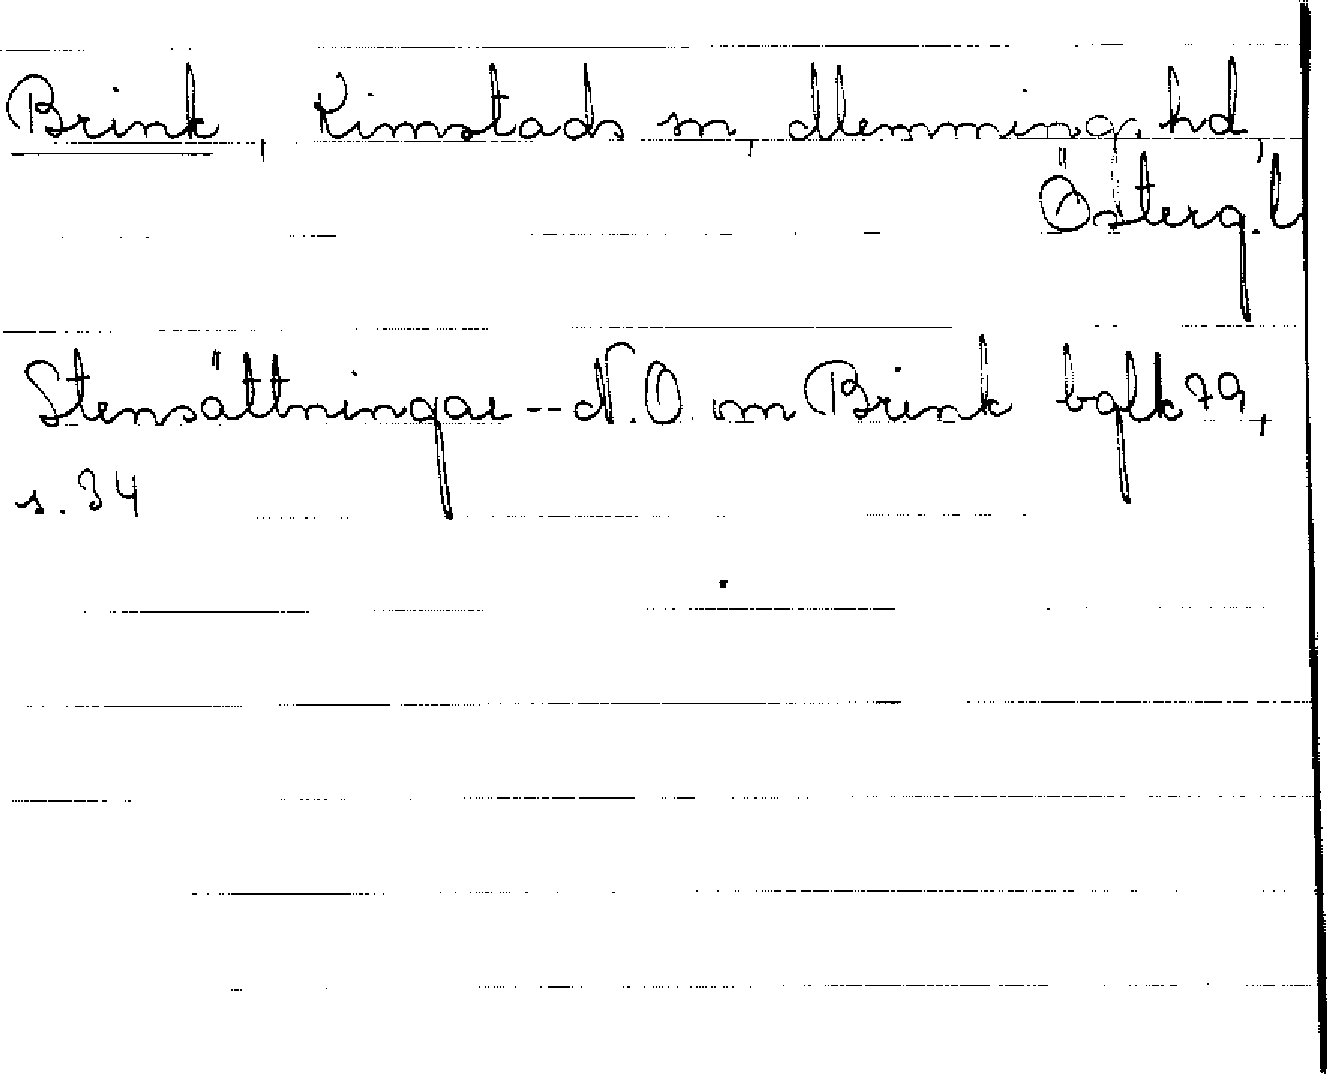 Brink, Kimstads sn, Memmings hd,
Österg. l.
Stensättningar -- N.O. om Brink bglk 79,
s. 34